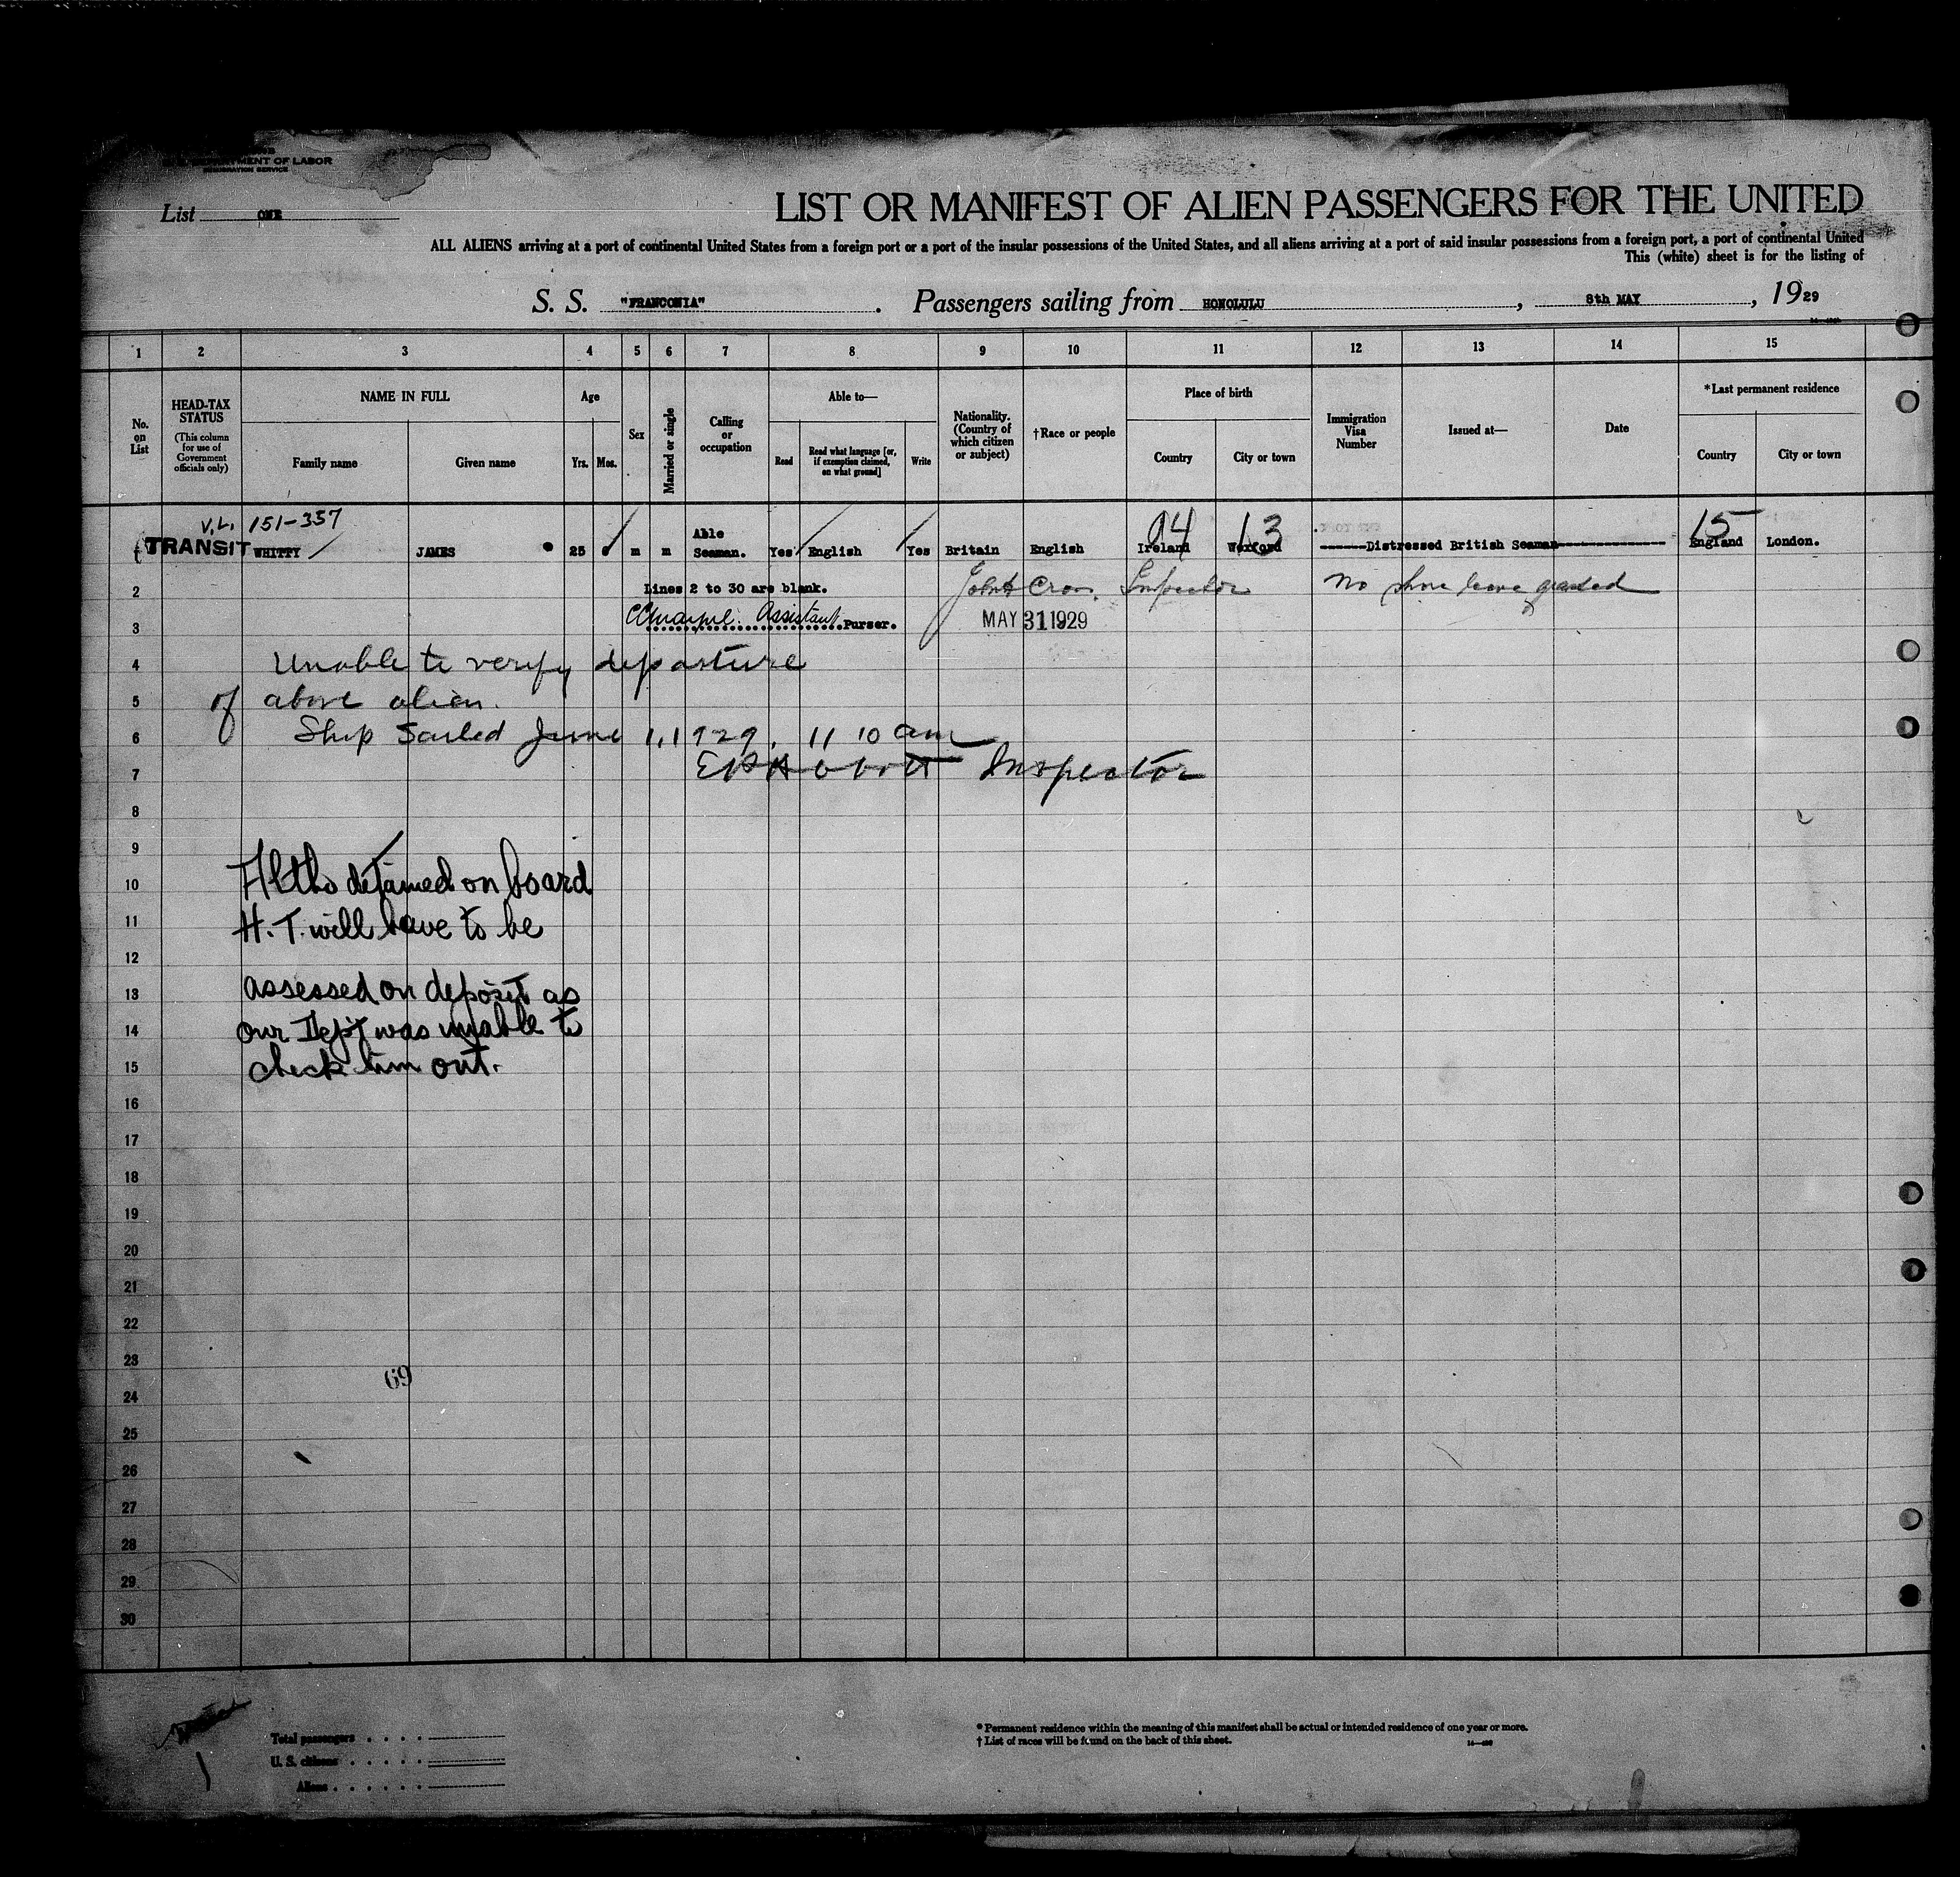 DEPARTMENT OF LABOR
IMMIGRATION SERVICE
List ONE
LIST OR MANIFEST OF ALIEN PASSENGERS FOR THE UNITED
ALL ALIENS arriving at a port of continental United States from a foreign port or a port of the insular possessions of the United States, and all aliens arriving at a port of said insular possessions from a foreign port, a port of continental United
This (white) sheet is for the listing of
S. S. "FRANCONIA". Passengers sailing from HONOLULU, 8th MAY, 1929
1 2 3 4 5 6 7 8 9 10 11 12 13 14 15
No. on List
HEAD-TAX STATUS (This column for use of Government officials only)
NAME IN FULL
Family name Given name
Age
Yrs. Mos.
Sex
Married or single
Calling or occupation
Able to—
Read Read what language [or, if exemption claimed, on what ground] Write
Nationality. (Country of which citizen or subject)
†Race or people
Place of birth
Country City or town
Immigration Visa Number
Issued at—
Date
*Last permanent residence
Country City or town
V.L. 151-357
04 13 15
TRANSIT WHITTY JAMES 25 m m Able Seaman. Yes English Yes Britain English Ireland Wexford Distressed British Seaman England London.
2 Lines 2 to 30 are blank. Inspector No shore leave granted
3 Assistant Purser. MAY 31 1929
4 Unable to verify departure
5 of above alien.
6 Ship Sailed June 1, 1929, 11 10 am
7 Inspector
8
9
10 Altho detained on board
11 H.T. will have to be
12
13 assessed on deposit as
14 our Dept was unable to
15 check him out.
16
17
18
19
20
21
22
23
69
24
25
26
27
28
29
30
Total passengers
U. S. citizens
Aliens
* Permanent residence within the meaning of this manifest shall be actual or intended residence of one year or more.
† List of races will be found on the back of this sheet.